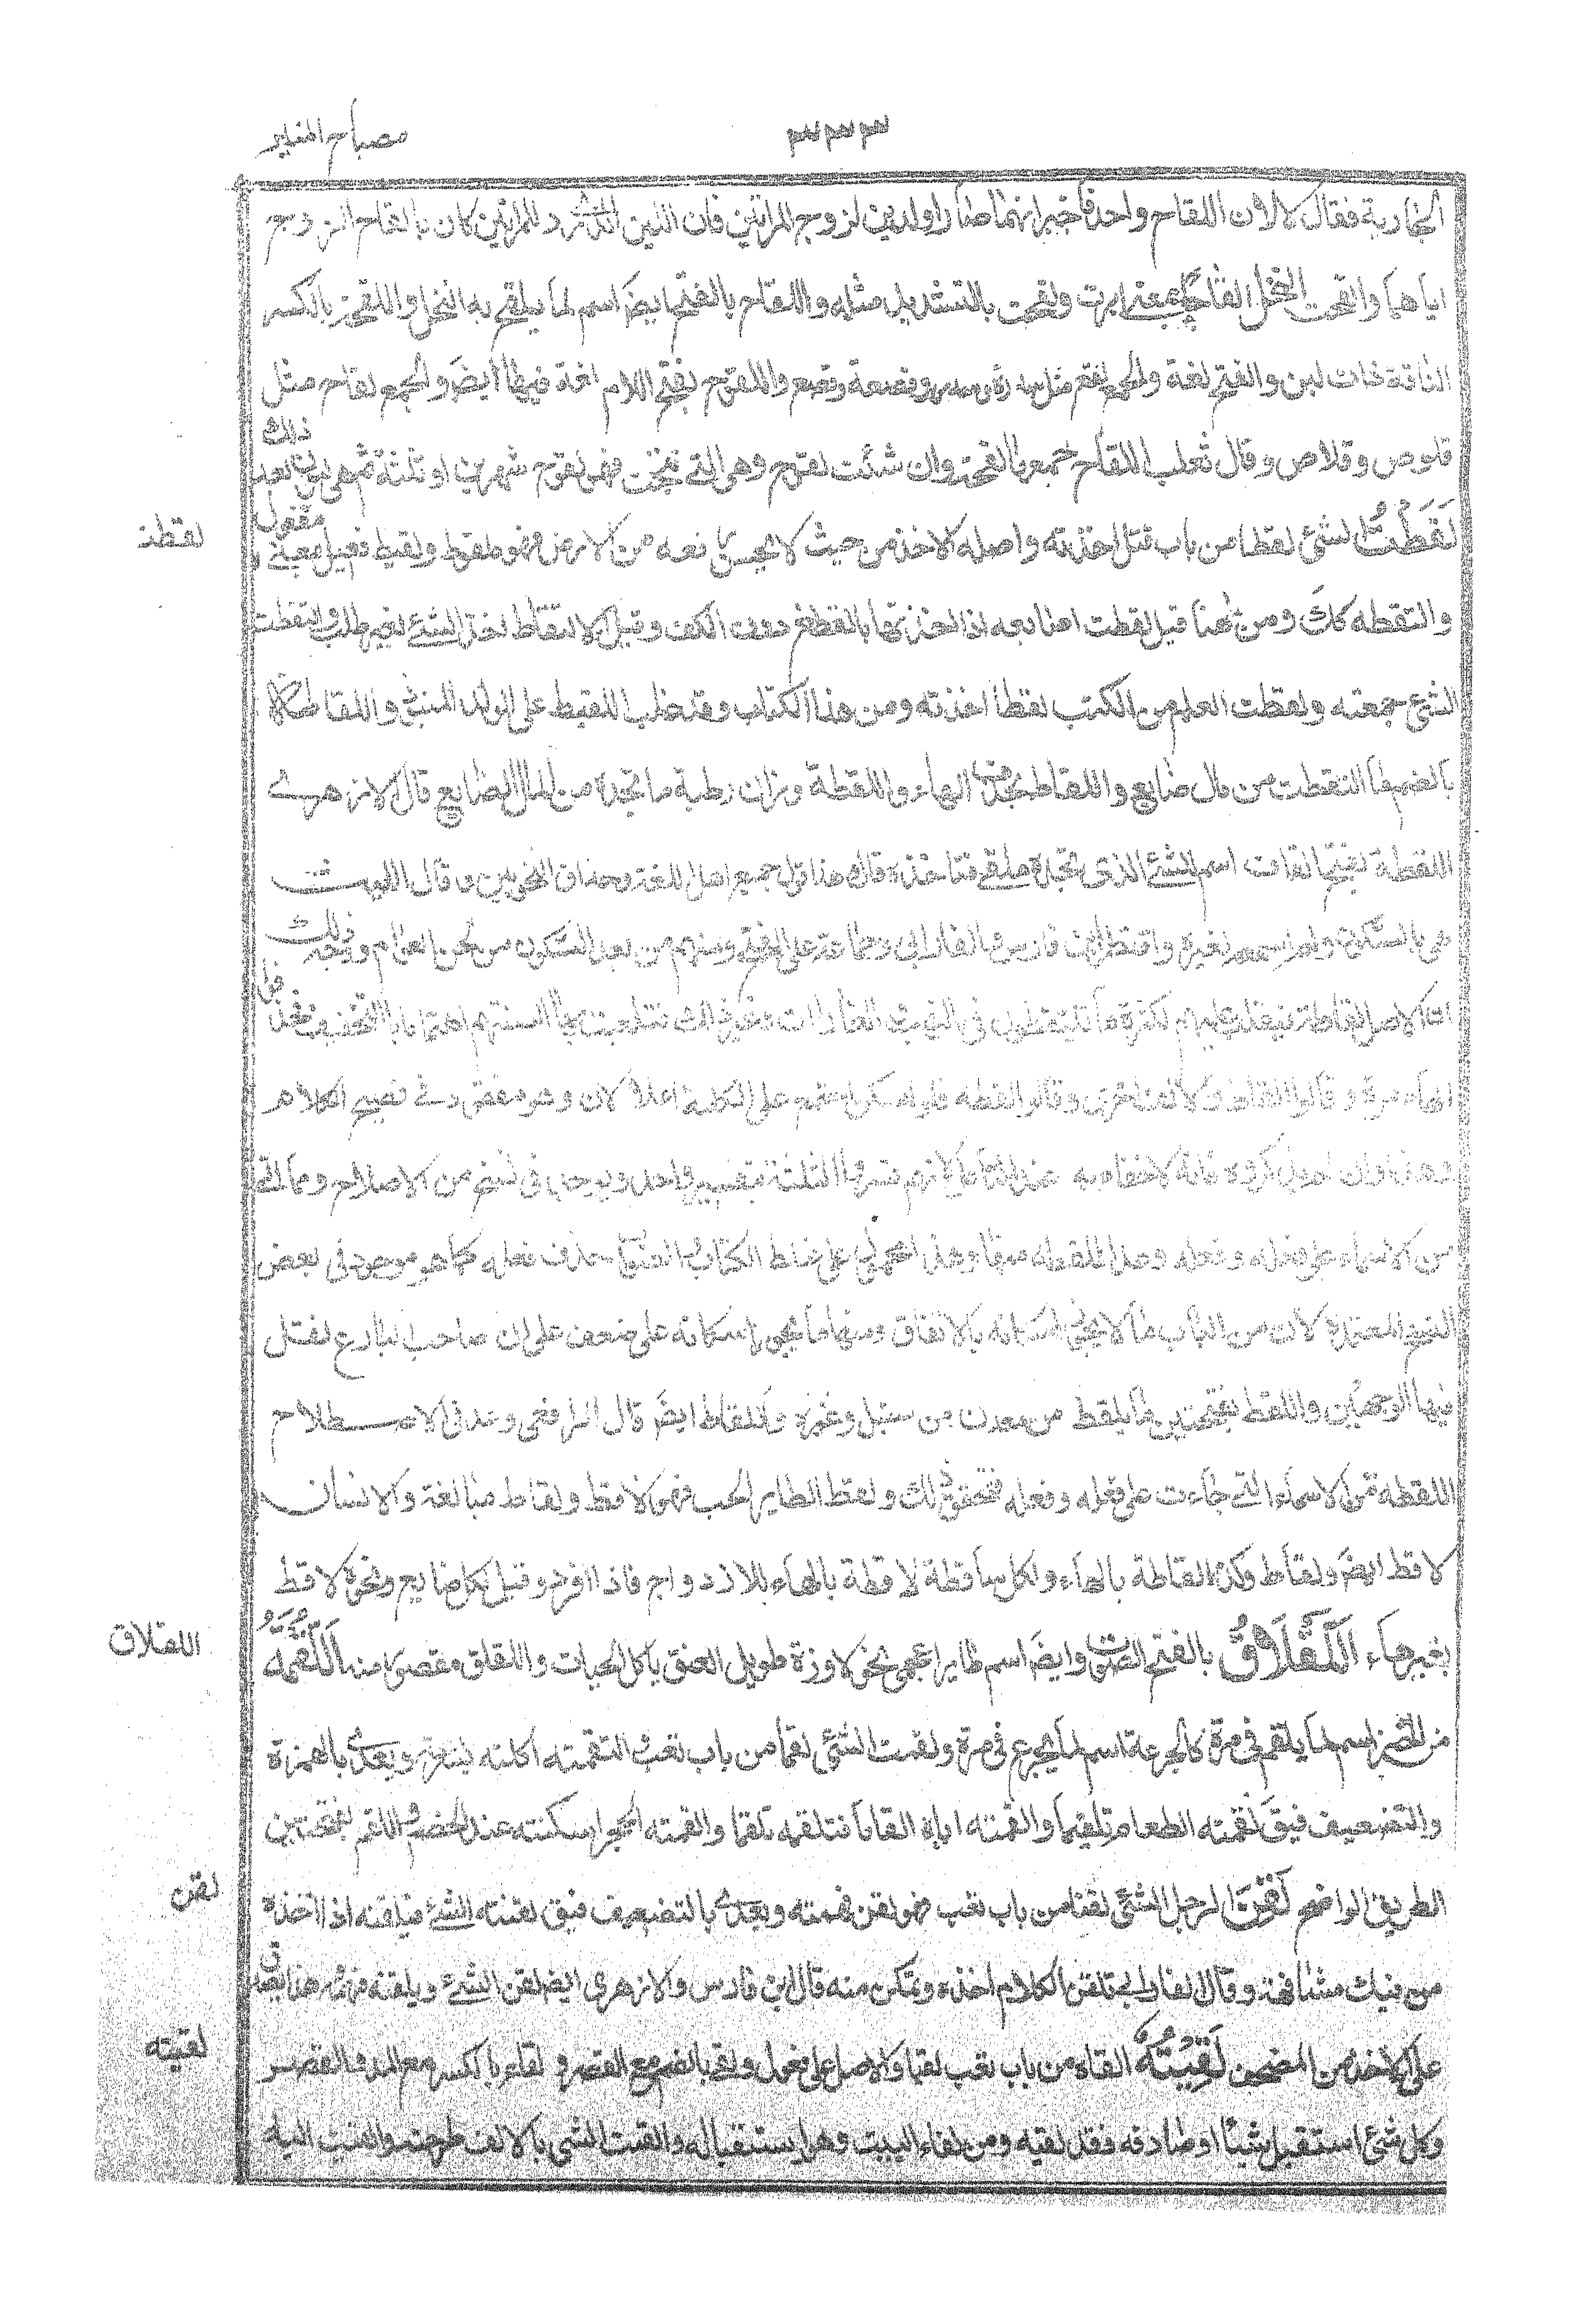 مصباح المنير
٣٣٣
الجارية فقال لا لان اللقاح واحد فاخبر انهما صارا ولدين لزوج المراتين فان اللبن الذى در للمراتين كان بالقاح الزوج
اياهما والقحت النخل القاحا بمعنى ابرت ولقحت بالتشديد مثله واللقاح بالفتح ايضَ اسم لما يلقح به النخل واللقحة بالكسر
الناقة ذات لبن والفتح لغة والجمع لقح مثل سدرة وسدر وقصعة وقصع واللقوح بفتح اللام لغة فيها ايضَ والجمع لقاح مثل
قلوص وقلاص وقال ثعلب اللقاح جمع لقحة وان شئت لقوح وهى التى نتجت فهى لقوح شهرين او ثلثة ثم هى لبون بعد ذلك
لقطة
لَقَطْتُ الشئ لقطا من باب قتل اخذته واصله الاخذ من حيث لا يحس نعه من الارض فهو ملقوط ولقيط فعيل بمعنى مفعول
والتقطه ككَ ومن هنا قيل لقطت اصابعه اذا اخذتها بالقطع دون الكف وقيل الالتقاط لاخذ الشئ لغير طلب والتقطت
الشئ جمعته ولقطت العلم من الكتب لقطا اخذته ومن هذا الكتاب وقد غلب اللقيط على الولد المنبوذ واللقاطة
بالضم ما التقطت من مال ضايع واللقاط بحذف الهاء واللقطة وزان رطبة ما تجده من المال الضايع قال الازهرى
اللقطة بفتح القاف اسم الشئ الذى تجده ملقى فتاخذه قال وهذا قول جميع اهل اللغة وحذاق النحويين وقال الليث
هى بالسكون ولم اسمعه لغيره واقتصر ابن فارس والفارابى وجماعة على الفتح ومنهم من يعد السكون من لحن العوام ووجه ذلك
ان الاصل لقاطة فثقلت عليهم لكثرة ما يلتقطون فى النهب والغارات وغير ذلك فتلعبت بها السنتهم اهتماما بالتخفيف فحذفوا
الهاء مرة وقالوا لقاط والالف اخرى وقالوا لقطه فلو اسكن اجتمع على الكلمة اعلالان وهو مفقود فى فصيح الكلام
وهذا وان لم يذكروه فانه لا خفاء به عند التامل لانهم فسروا الثلثة بتفسير واحد ويوجد فى نسخ من الاصلاح ومما اتى
من الاسماء على فعله وفعله وعد اللقطه منها وهذا محمول على غلط الكتاب والصواب حذف فعله كما هو موجود فى بعض
النسخ المعتمدة لان من الباب ما لا يجوز اسكانه بالاتفاق ومنها ما يجوز اسكانه على ضعف على ان صاحب البارع نقل
فيها الوجهين واللقط بفتحتين ما يلقط من معدن من سنبل وغيره واللقاط ايضَ قال الرافعى وعد فى الاصطلاح
اللقطه من الاسماء التى جاءت على فعله وفعله ولقط الطاير الحب فهو لاقط ولقاط مبالغة والانسان
لاقط ايضَ ولقاط وكذا لقاطة بالهاء ولكل ساقطة لاقطة بالهاء للازدواج فاذا افرد وقيل لكل ضايع ونحوه لاقط
اللقلاق
بغير هاء اللَّقْلَاقُ بالفتح الصوت وايضَ اسم طاير اعجمى نحو الاوزة طويل العنق ياكل الحيات واللقلق مقصور منه اَللُّقْمَةُ
من الخبز اسم لما يلقم فى مرة كالجرعة اسم لما يجرع فى مرة ولقمت الشئ لقما من باب تعب والتقمته اكلته بسرعة ويعدى بالهمزة
والتضعيف فيقَ لقمته الطعام تلقيما والقمته اياه القاما فتلقمه تلقما والقمته الحجر اسكتته عند الخصام واللقم بفتحتين
لقن
الطريق الواضح لَقِنَ الرجل الشئ لقنا من باب تعب فهو لقن فهمته ويعدى بالتضعيف فيق لقنته الشئ فتلقنه اذا اخذه
من فيك مشافهة وقال الفارابى تلقن الكلام اخذه وتمكن منه قال ابن فارس والازهرى ايضَ لقن الشئ وتلقنه فهمه وهذا يصدق
لقيته
على الاخذ من المصحف لَقِيتُهُ القاه من باب تعب لقيا والاصل على فعول ولقى بالضم مع القصر ولقاء بالكسر مع المد والقصر
وكل شئ استقبل شيئا او صادفه فقد لقيه ومن لقاء البيت وهو استقباله والقيت الشئ بالالف طرحته والقيت اليه